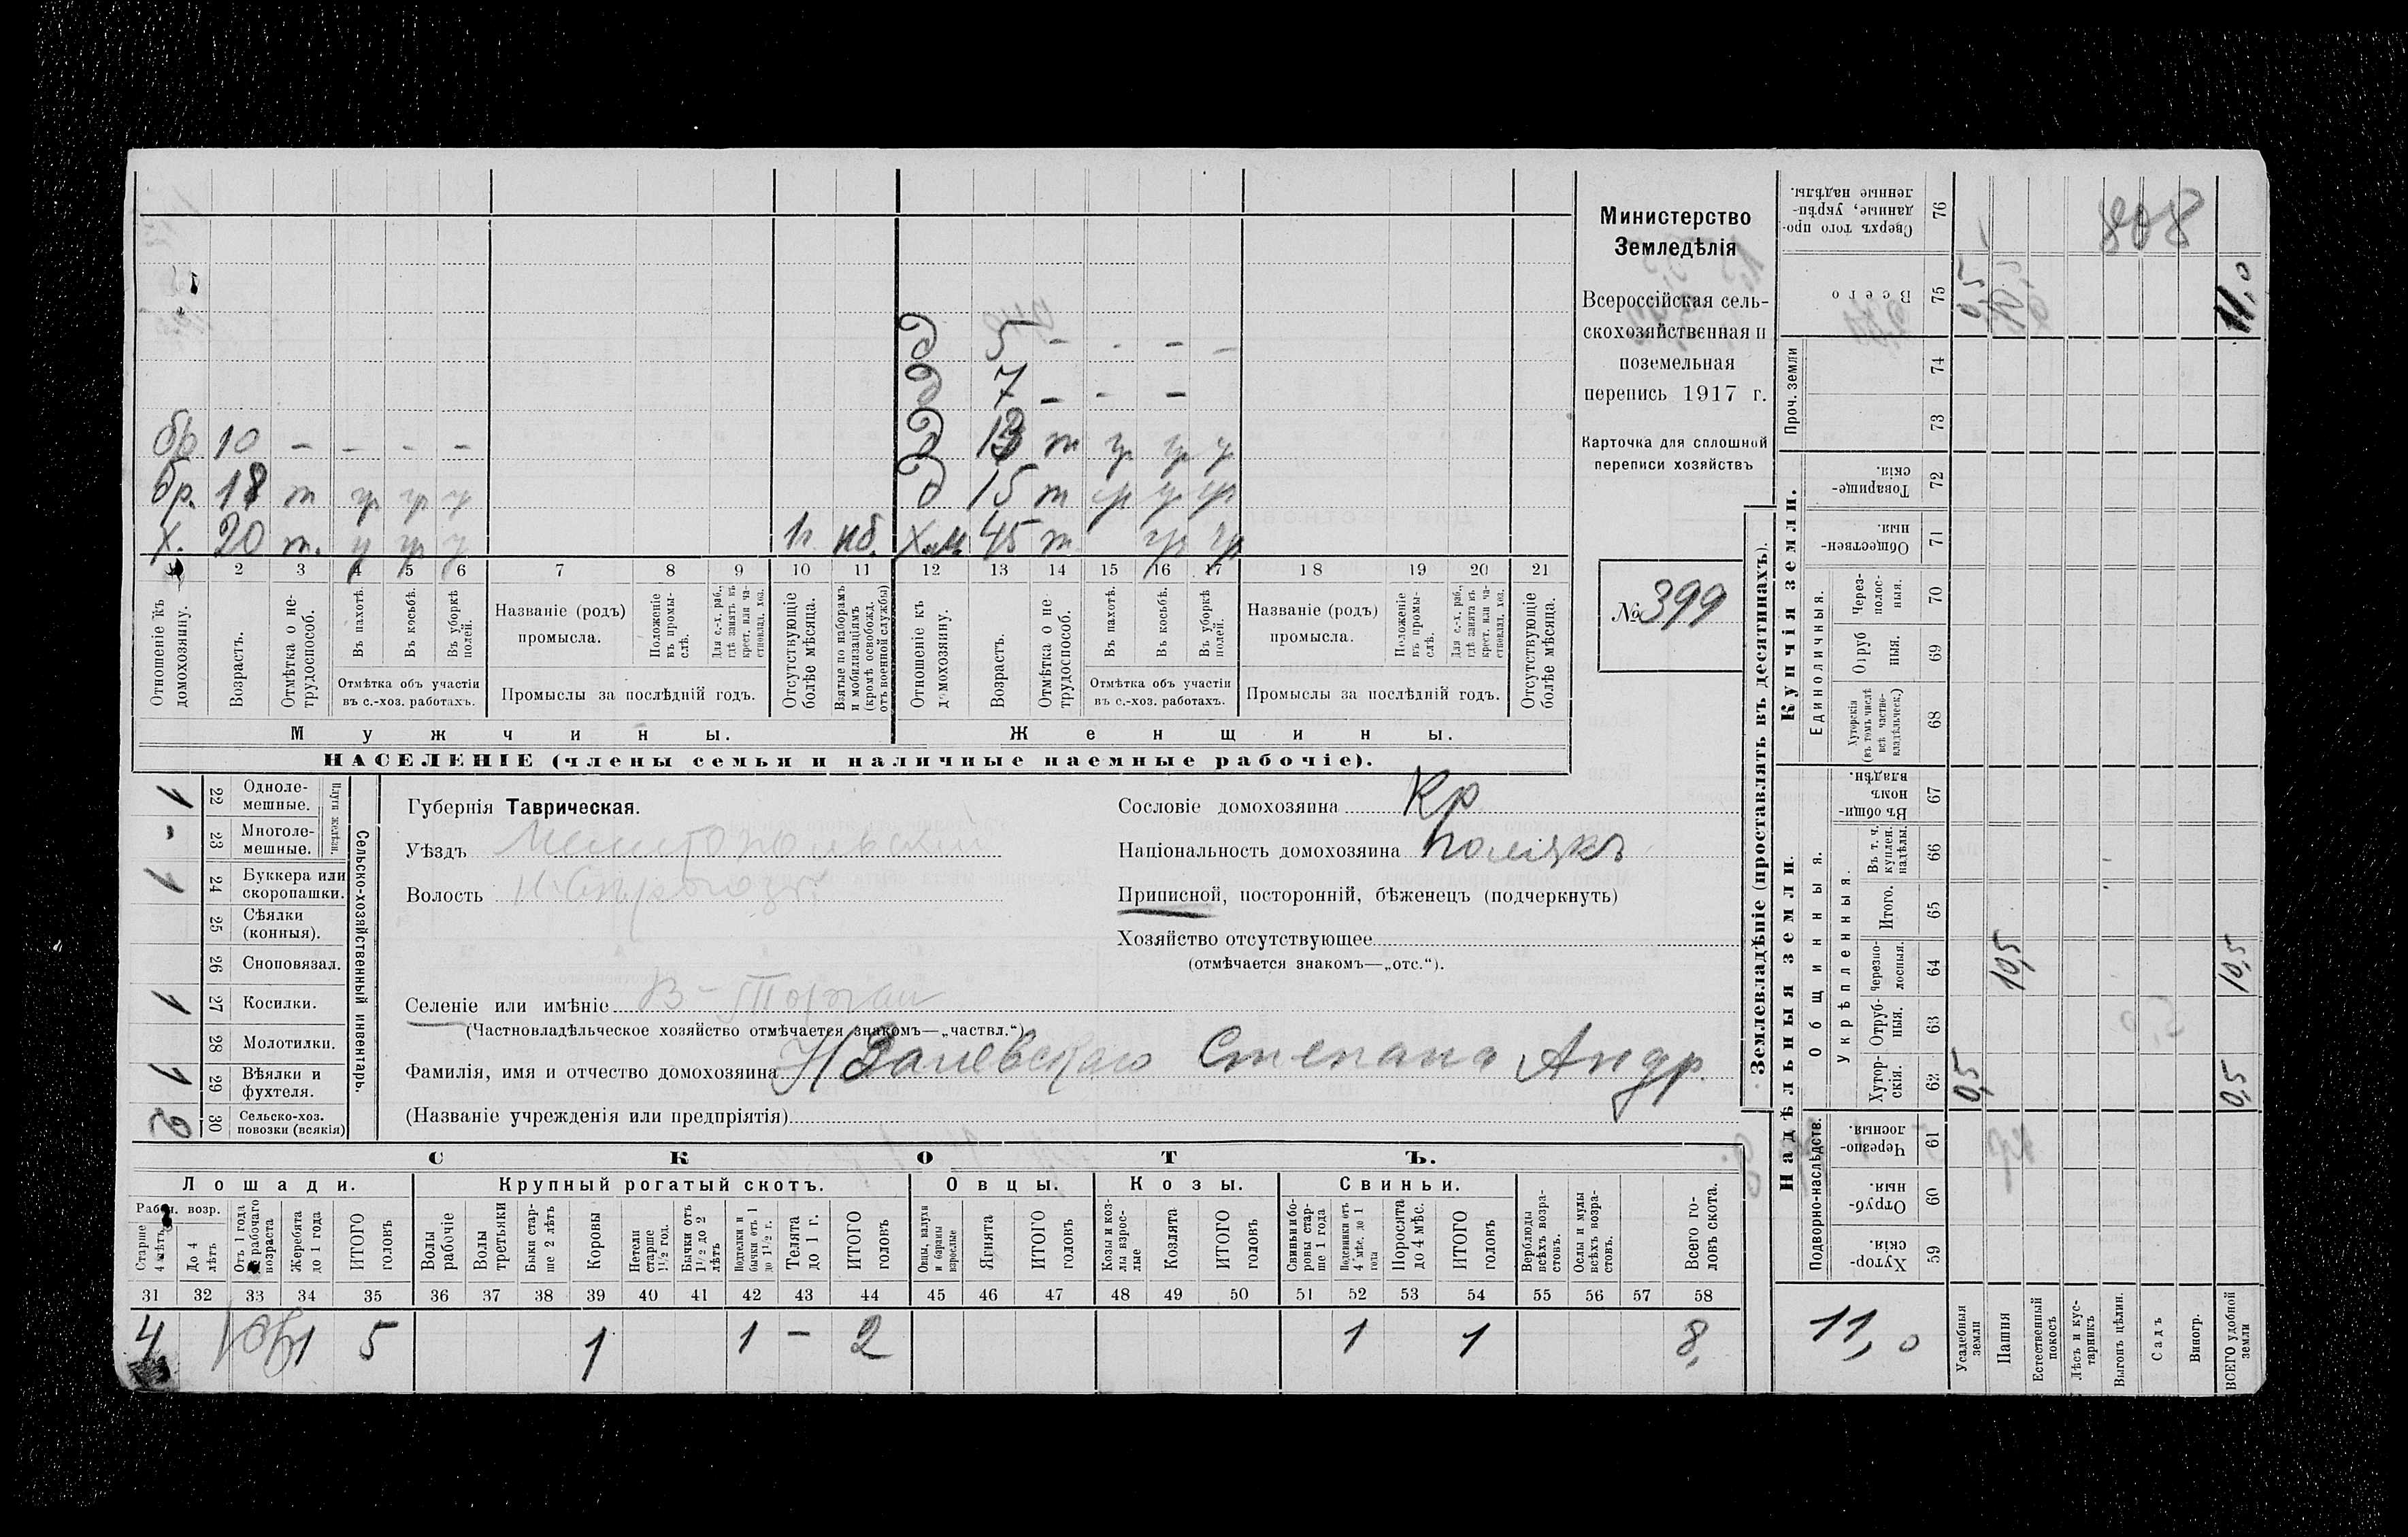 Министерство
Земледѣлія
Всероссійская сель-
скохозяйственная и
поземельная
перепись 1917 г.
Карточка для сплошной
переписи хозяйствъ
№ 399
д 5 - - - -
д 7 - - -
бр 10 - - - -
д 13 т у у у
бр. 18 т у у у
д 15 т у у у
х. 20 т. у у у
45 т у у
1 2 3 4 5 6 7 8 9 10 11 12 13 14 15 16 17 18 19 20 21
Отношеніе къ домохозяину.
Возрастъ.
Отмѣтка о не-трудоспособ.
Въ пахотѣ.
Въ косьбѣ.
Въ уборкѣ полей.
Отмѣтка объ участіи
въ с.-хоз. работахъ.
Названіе (родъ)
промысла.
Положеніе въ промы-слѣ.
Для с.-х. раб., гдѣ занятъ въ крест. или ча-стновлад. хоз.
Промыслы за послѣдній годъ.
Отсутствующіе болѣе мѣсяца.
Взятые по наборамъ и мобилизаціямъ (кромѣ освобожд. отъ военной службы)
Отношеніе къ домохозяину.
Возрастъ.
Отмѣтка о не трудоспособ.
Въ пахотѣ.
Въ косьбѣ.
Въ уборкѣ полей.
Отмѣтка объ участіи
въ с.-хоз. работахъ.
Названіе (родъ)
промысла.
Положеніе въ промы-слѣ.
Для с.-х. раб., гдѣ занята въ крест. или ча-стновлад. хоз.
Промыслы за послѣдній годъ.
Отсутствующіе болѣе мѣсяца.
Мужчины.
Женщины.
НАСЕЛЕНІЕ (члены семьи и наличные наемные рабочіе).
Сельско-хозяйственный инвентарь.
Плуги желѣзн.
1 22 Одноле-мешные.
- 23 Многоле-мешные.
1 24 Буккера или скоропашки.
25 Сѣялки (конныя).
26 Сноповязал.
1 27 Косилки.
28 Молотилки.
1 29 Вѣялки и фухтеля.
2 30 Сельско-хоз. повозки (всякія)
Губернія Таврическая.
Уѣздъ Мелитопольскій
Волость
Селеніе или имѣніе В-Торгаи
(Частновладѣльческое хозяйство отмѣчается знакомъ—„частвл.“)
Фамилія, имя и отчество домохозяина Залевскаго Степана Андр.
(Названіе учрежденія или предпріятія)
Сословіе домохозяина Кр
Національность домохозяина полякъ
Приписной, посторонній, бѣженецъ (подчеркнуть)
Хозяйство отсутствующее
(отмѣчается знакомъ—„отс.“).
СКОТЪ.
Лошади.
Крупный рогатый скотъ.
Овцы.
Козы.
Свиньи.
Рабоч. возр.
Старше 4 лѣтъ
До 4 лѣтъ
Отъ 1 года до рабочаго возраста
Жеребята до 1 года
ИТОГО головъ
Волы рабочіе
Волы третьяки
Быки стар-ше 2 лѣтъ
Коровы
Нетели старше 1½ год.
Бычки отъ 1½ до 2 лѣтъ
Подтелки и бычки отъ 1 до 1½ г.
Телята до 1 г.
ИТОГО головъ
Овцы, валухи и бараны взрослые
Ягнята
ИТОГО головъ
Козы и коз-лы взрос-лые
Козлята
ИТОГО головъ
Свиньи и бо-ровы стар-ше 1 года
Подсвинки отъ 4 мѣс. до 1 года
Поросята до 4 мѣс.
ИТОГО головъ
Верблюды всѣхъ возра-стовъ.
Ослы и мулы всѣхъ возра-стовъ.
Всего го-ловъ скота.
31 32 33 34 35 36 37 38 39 40 41 42 43 44 45 46 47 48 49 50 51 52 53 54 55 56 57 58
4 1 5 1 1 - 2 1 1 8.
Землевладѣніе (проставлять въ десятинахъ).
Надѣльныя земли.
Купчія земли.
Проч. земли
Подворно-наслѣдств.
Общинныя.
Укрѣпленныя.
Единоличныя.
Хутор-скія. 59
Отруб-ныя. 60
Черезпо-лосныя. 61
Хутор-скія. 62
Отруб-ныя. 63
Черезпо-лосныя. 64
Итого. 65
Въ т. ч. куплен. надѣлы. 66
Въ общи-номъ владѣн. 67
Хуторскія (въ томъ числѣ всѣ частно-владѣльческ.) 68
Отруб ныя. 69
Через-полос-ныя. 70
Обществен-ныя. 71
Товарище-скія. 72
73
74
Всего 75
Сверхъ того про-данные, укрѣп-ленные надѣлы. 76
11,0
Усадебныя земли
Пашня
Естественный покосъ
Лѣсъ и кус-тарникъ
Выгонъ цѣлин.
Садъ
Виногр.
ВСЕГО удобной земли
0,5
10,5
0,5
10,5
0,5
11,0
808